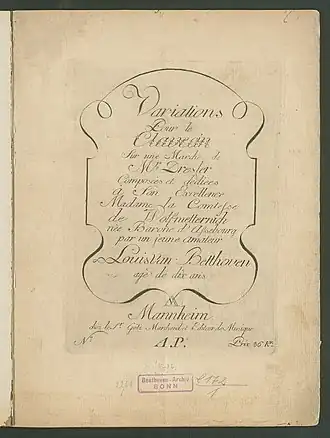 Variations
Pour le
Clavecin
Sur une Marche de
Mr. Dresler
Composées et dediées
à Son Excellence
Madame la Comtesse
de Wolfmetternich
née Baronne d'Assebourg
par un jeune amateur
Louis van Betthoven
agé de dix ans
Mannheim
chés le Sr. Götz Marchand et Editeur de Musique
No.
A.P.
Prix 36 Xr.
Beethoven-Archiv
BONN